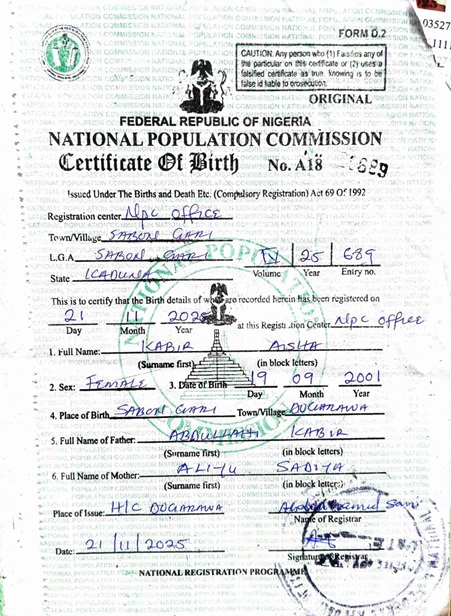 03527
1111
FORM D.2
CAUTION: Any person who (1) Falsifies any of
the particular on this certificate or (2) uses a
falsified certificate as true, knowing is to be
false is liable to prosecution.
ORIGINAL
FEDERAL REPUBLIC OF NIGERIA
NATIONAL POPULATION COMMISSION
Certificate Of Birth No. A18 689
Issued Under The Births and Death Etc. (Compulsory Registration) Act 69 Of 1992
Registration center Npc office
Town/Village SABON GARI
L.G.A SABON GARI IV 25 689
State KADUNA Volume Year Entry no.
This is to certify that the Birth details of who are recorded herein has been registered on
21 11 2025 at this Registration Center Npc office
Day Month Year
1. Full Name: KABIR AISHA
(Surname first) (in block letters)
2. Sex: FEMALE 3. Date of Birth 19 09 2001
Day Month Year
4. Place of Birth SABON GARI Town/Village DOGARAWA
5. Full Name of Father: KABIR
(Surname first) (in block letters)
6. Full Name of Mother: ALIYU SADIYA
(Surname first) (in block letters)
Place of Issue: H/C DOGARAWA Sani
Name of Registrar
Date: 21/11/2025 Signature of Registrar
NATIONAL REGISTRATION PROGRAMME
NATIONAL POPULATION COMMISSION